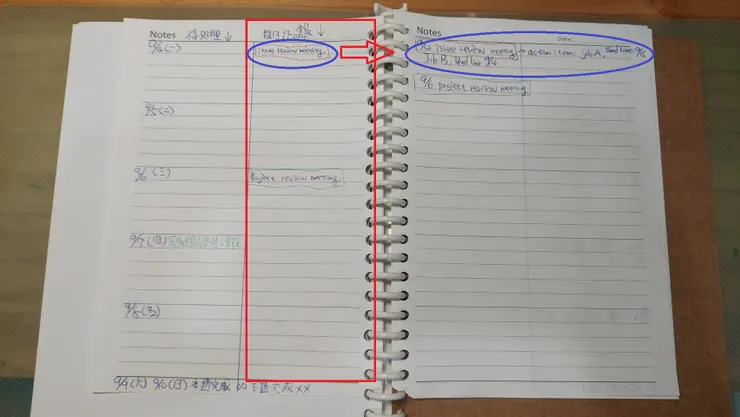 Notes 待處理↓
9/4(一)
issue review meeting
9/5(二)
9/6(三)
Project review meeting
9/7(四)
9/8(五)
9/9(六) 9/10(日) 本週完成 00 下週完成 xx
Notes
Date
9/4 issue review meeting → action item: job A, Dead Line: 9/5
Job B, Dead Line 9/4
9/6 project review meeting